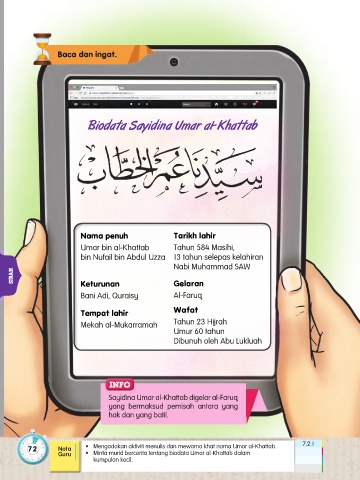 Baca dan ingat.
Biodata Sayidina Umar al-Khattab
سَيِّدِنَا عُمَرُ الْخَطَّابِ
Nama penuh
Umar bin al-Khattab
bin Nufail bin Abdul Uzza
Keturunan
Bani Adi, Quraisy
Tempat lahir
Mekah al-Mukarramah
Tarikh lahir
Tahun 584 Masihi,
13 tahun selepas kelahiran
Nabi Muhammad SAW
Gelaran
Al-Faruq
Wafat
Tahun 23 Hijrah
Umur 60 tahun
Dibunuh oleh Abu Lukluah
SIRAH
INFO
Sayidina Umar al-Khattab digelar al-Faruq
yang bermaksud pemisah antara yang
hak dan yang batil.
72
Nota
Guru
• Mengadakan aktiviti menulis dan mewarna khat nama Umar al-Khattab.
• Minta murid bercerita tentang biodata Umar al-Khattab dalam
kumpulan kecil.
7.2.1